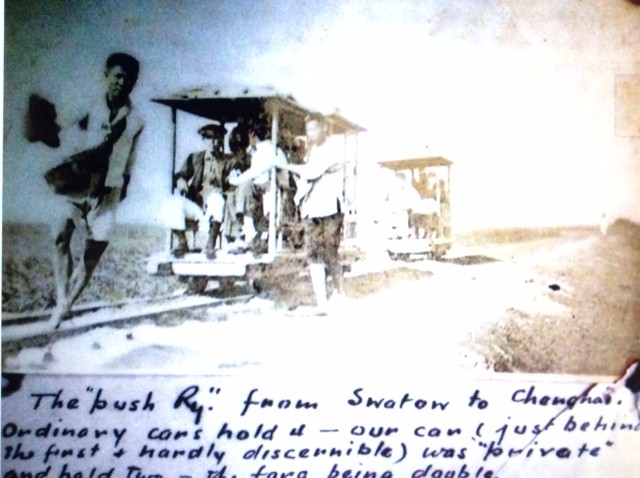 The "push Ry." from Swatow to Chenghai".
Ordinary cars hold 4 – our car (just behind
the first & hardly discernible) was "private"
and held two – the fare being double.